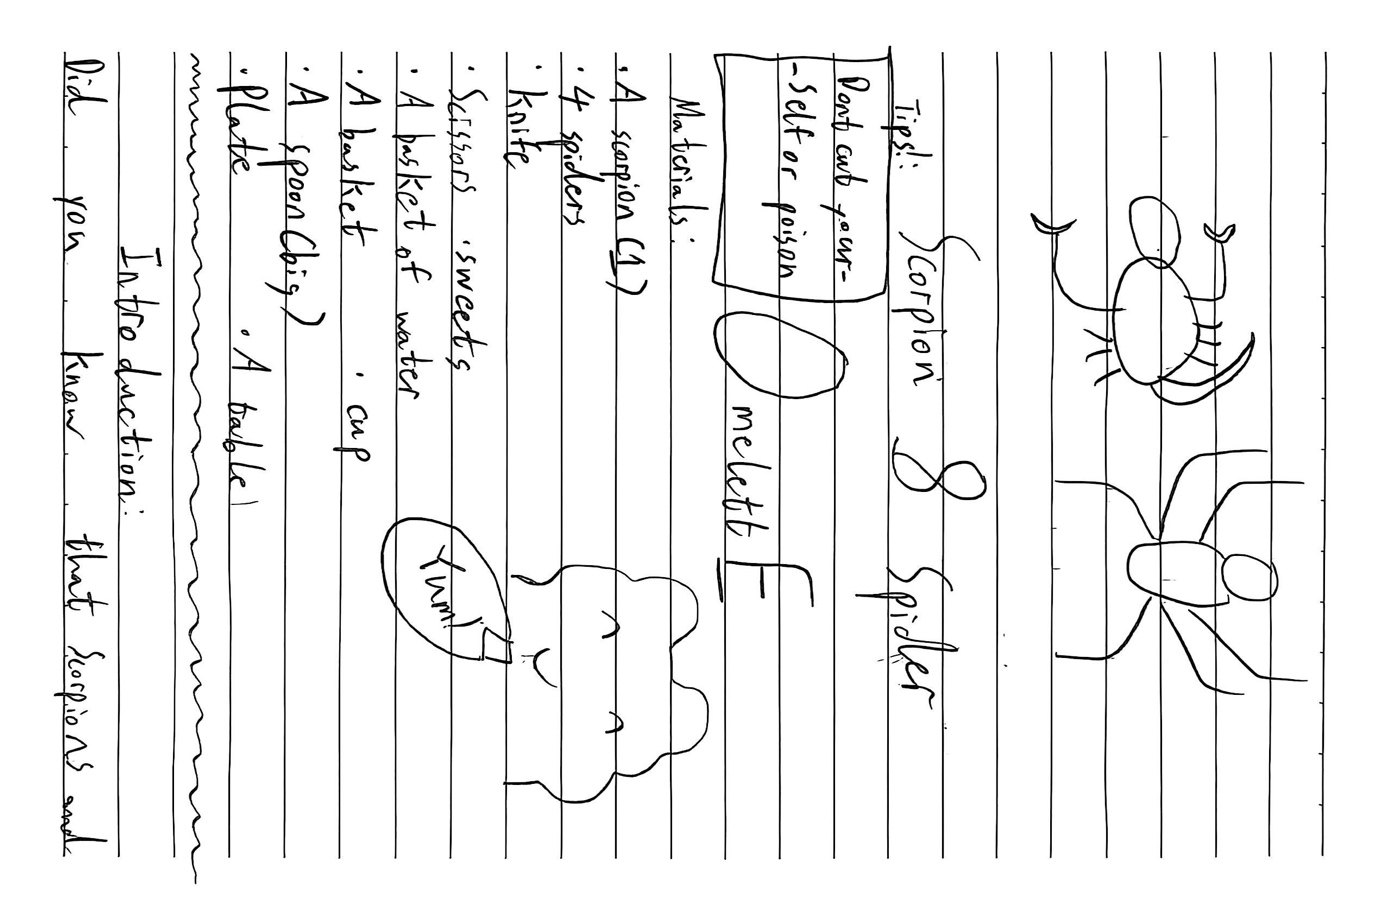 Scorpion & Spider
Tips!:
Dont cut your-
-self or poison
melett E
Materials:
· A scorpion (1)
· 4 spiders
· knife
· Scissors · sweets
· A basket of water
· A basket · cup
· A spoon (big)
· Plate · A table
Yum!
Introduction:
Did you know that Scorpions and